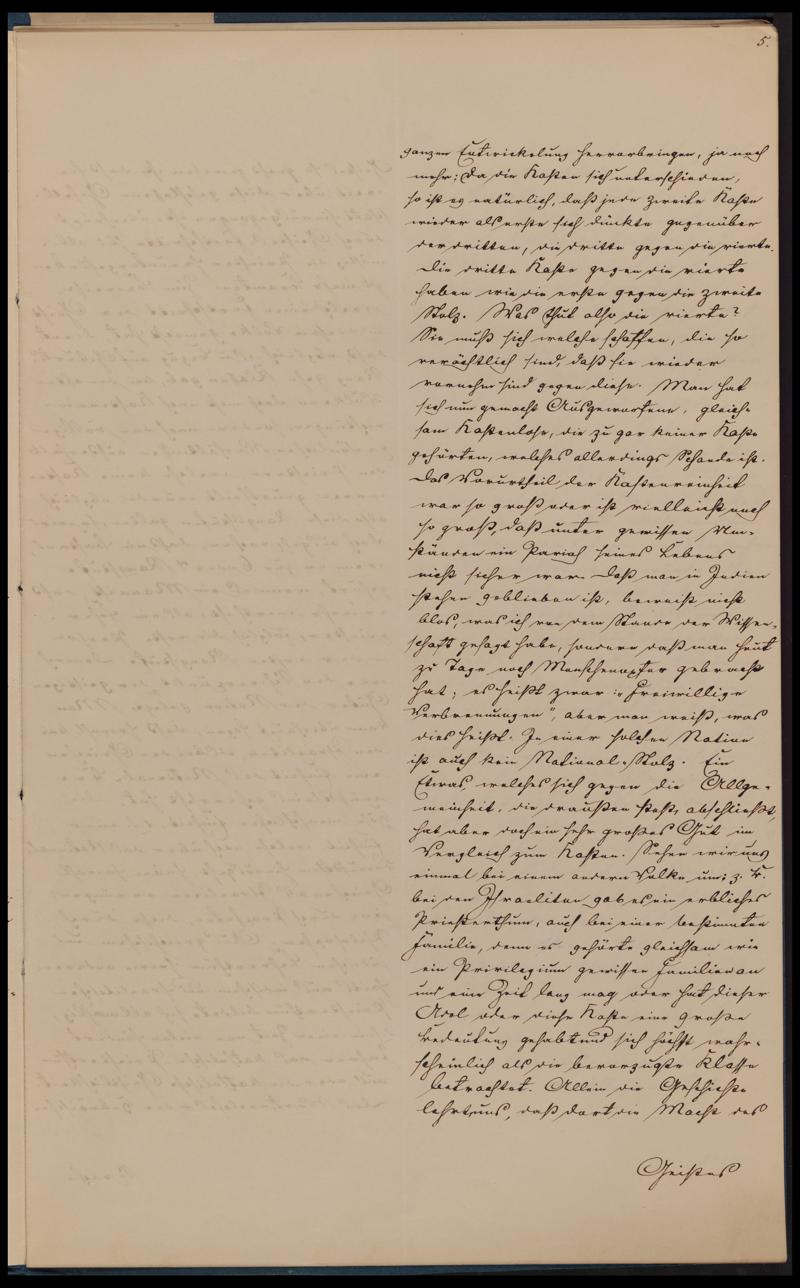 5.
ganzen Entwickelung hervorbringen, ja noch
mehr: Da die Kasten sich unterschieden,
so ist es natürlich, daß jede zweite Kaste
wieder als erste sich dünkte gegenüber
der dritten, die dritte gegen die vierte.
Die dritte Kaste gegen die vierte
haben wie die erste gegen die zweite
Stolz. Was thut also die vierte?
Sie muß sich welche schaffen, die so
verächtlich sind, daß sie wieder
vornehm sind gegen diese. Man hat
sich nun gemacht Ausgeworfene, gleich-
sam Kastenlose, die zu gar keiner Kaste
gehörten, welches allerdings Schande ist.
Das Vorurtheil der Kastenreinheit
war so groß oder ist vielleicht noch
so groß, daß unter gewissen Um-
ständen ein Pariah seines Lebens
nicht sicher war. Daß man in Indien
stehen geblieben ist, beweist nicht
blos, was ich von dem Stande der Wissen-
schaft gesagt habe, sondern daß man heut
zu Tage noch Menschenopfer gebracht
hat; es heißt zwar: „Freiwillige
Verbrennungen", aber man weiß, was
dies heißt. In einer solchen Nation
ist auch kein National-Stolz. Ein
Etwas, welches sich gegen die Allge-
meinheit, die draußen steht, abschließt,
hat aber doch ein sehr großes Gut im
Vergleich zum Kasten. Sehen wir uns
einmal bei einem andern Volke um; z. B.
bei den Israeliten gab es ein erbliches
Priesterthum, auch bei einer bestimmten
Familie, denn es gehörte gleichsam wie
ein Privilegium gewissen Familien an
und eine Zeit lang mag oder hat dieser
Adel oder diese Kaste eine große
Bedeutung gehabt und sich höchst wahr-
scheinlich als die bevorzugte Klasse
betrachtet. Allein die Geschichte
lehrt uns, daß dort die Macht des
Geistes